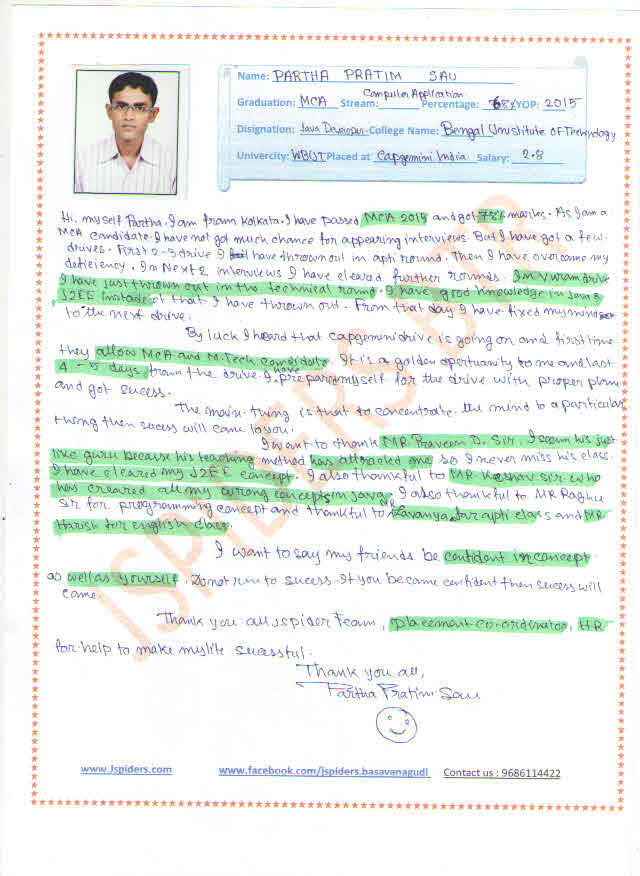 Name: PARTHA PRATIM SAU
Computer Application
Graduation: MCA Stream: Percentage: 78% YOP: 2015
Disignation: Java Developer College Name: Bengal Institute of Technology
Univercity: WBUT Placed at Capgemini India Salary: 2.8
Hi, myself Partha. I am from Kolkata. I have passed MCA 2015 and got 78% marks. As I am a
MCA candidate I have not got much chance for appearing interviews. But I have got a few
drives. First 2-3 drive I have thrown out in apti round. Then I have overcome my
deficiency. In Next 2 interviews I have cleared further rounds. In Vwram drive
I have just thrown out in the technical round. I have good knowledge in Java &
J2EE instade of that I have thrown out. From that day I have fixed my mind
to the next drive.
By luck I heard that capgemini drive is going on and first time
they allow MCA and M.Tech candidate. It is a golden opertuanity to me and last
4-5 days from the drive I have prepare myself for the drive with proper plan
and got sucess.
The main thing is that to concentrate the mind to a particular
thing then sucess will came to you.
I want to thank MR Praveen D. Sir. I seem his just
like guru because his teaching method has attracted me so I never miss his class.
I have cleared my J2EE concept. I also thankful to MR Keshav sir who
has creared all my wrong concepts in java. I also thankful to MR Raghu
Sir for programming concept and thankful to Lavanya for apti class and MR
Harish for english class.
I want to say my friends be confident in concept
as well as yourself. Do not run to sucess. If you became confident then sucess will
came.
Thank you all jspider team, placement co-ordinator, HR
for help to make my life sucessful.
Thank you all,
Partha Pratim Sau
JSPIDERS BTR
www.Jspiders.com www.facebook.com/jspiders.basavanagudi Contact us : 9686114422